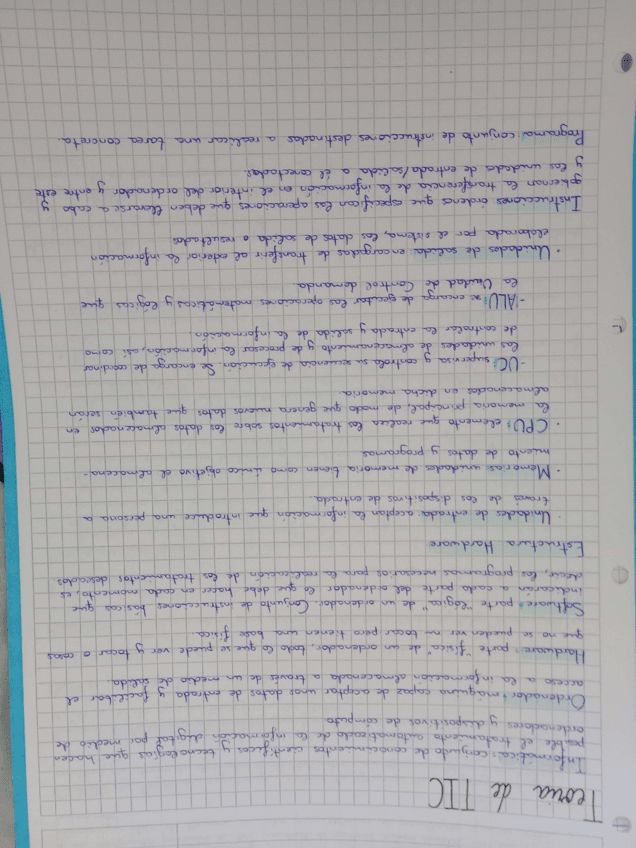 Teoria de TIC
Informática: conjunto de conocimientos científicos y tecnologías que hacen
posible el tratamiento automatizado de la información digital por medio de
ordenadores y dispositivos de cómputo
Ordenador: máquina capaz de aceptar unos datos de entrada y facilitar el
acceso a la información almacenada a través de un medio de salida.
Hardware: parte "física" de un ordenador, todo lo que se puede ver y tocar o cosas
que no se pueden ver ni tocar pero tienen una base física.
Software: parte "lógica" de un ordenador. Conjunto de instrucciones básicas que
indicarán a cada parte del ordenador lo que debe hacer en cada momento, es
decir, los programas necesarios para la realización de los tratamientos deseados
Estructura Hardware
· Unidades de entrada: aceptan la información que introduce una persona a
través de los dispositivos de entrada.
· Memorias: unidades de memoria tienen como único objetivo el almacena-
miento de datos y programas
· CPU: elemento que realiza los tratamientos sobre los datos almacenados en
la memoria principal, de modo que genera nuevos datos que también serán
almacenados en dicha memoria.
-UC: supervisa y controla su secuencia de ejecución. Se encarga de coordinar
las unidades de almacenamiento y de procesar la información, así como
de controlar la entrada y salida de la información.
-ALU: se encarga de ejecutar las operaciones matemáticas y lógicas que
la Unidad de Control demanda.
· Unidades de salida: encargadas de transferir al exterior la información
elaborada por el sistema, los datos de salida o resultados
Instrucciones: órdenes que especifican las operaciones que deben llevarse a cabo y
gobiernan la transferencia de la información en el interior del ordenador y entre este
y las unidades de entrada/salida a él conectadas
Programa: conjunto de instrucciones destinadas a realizar una tarea concreta.